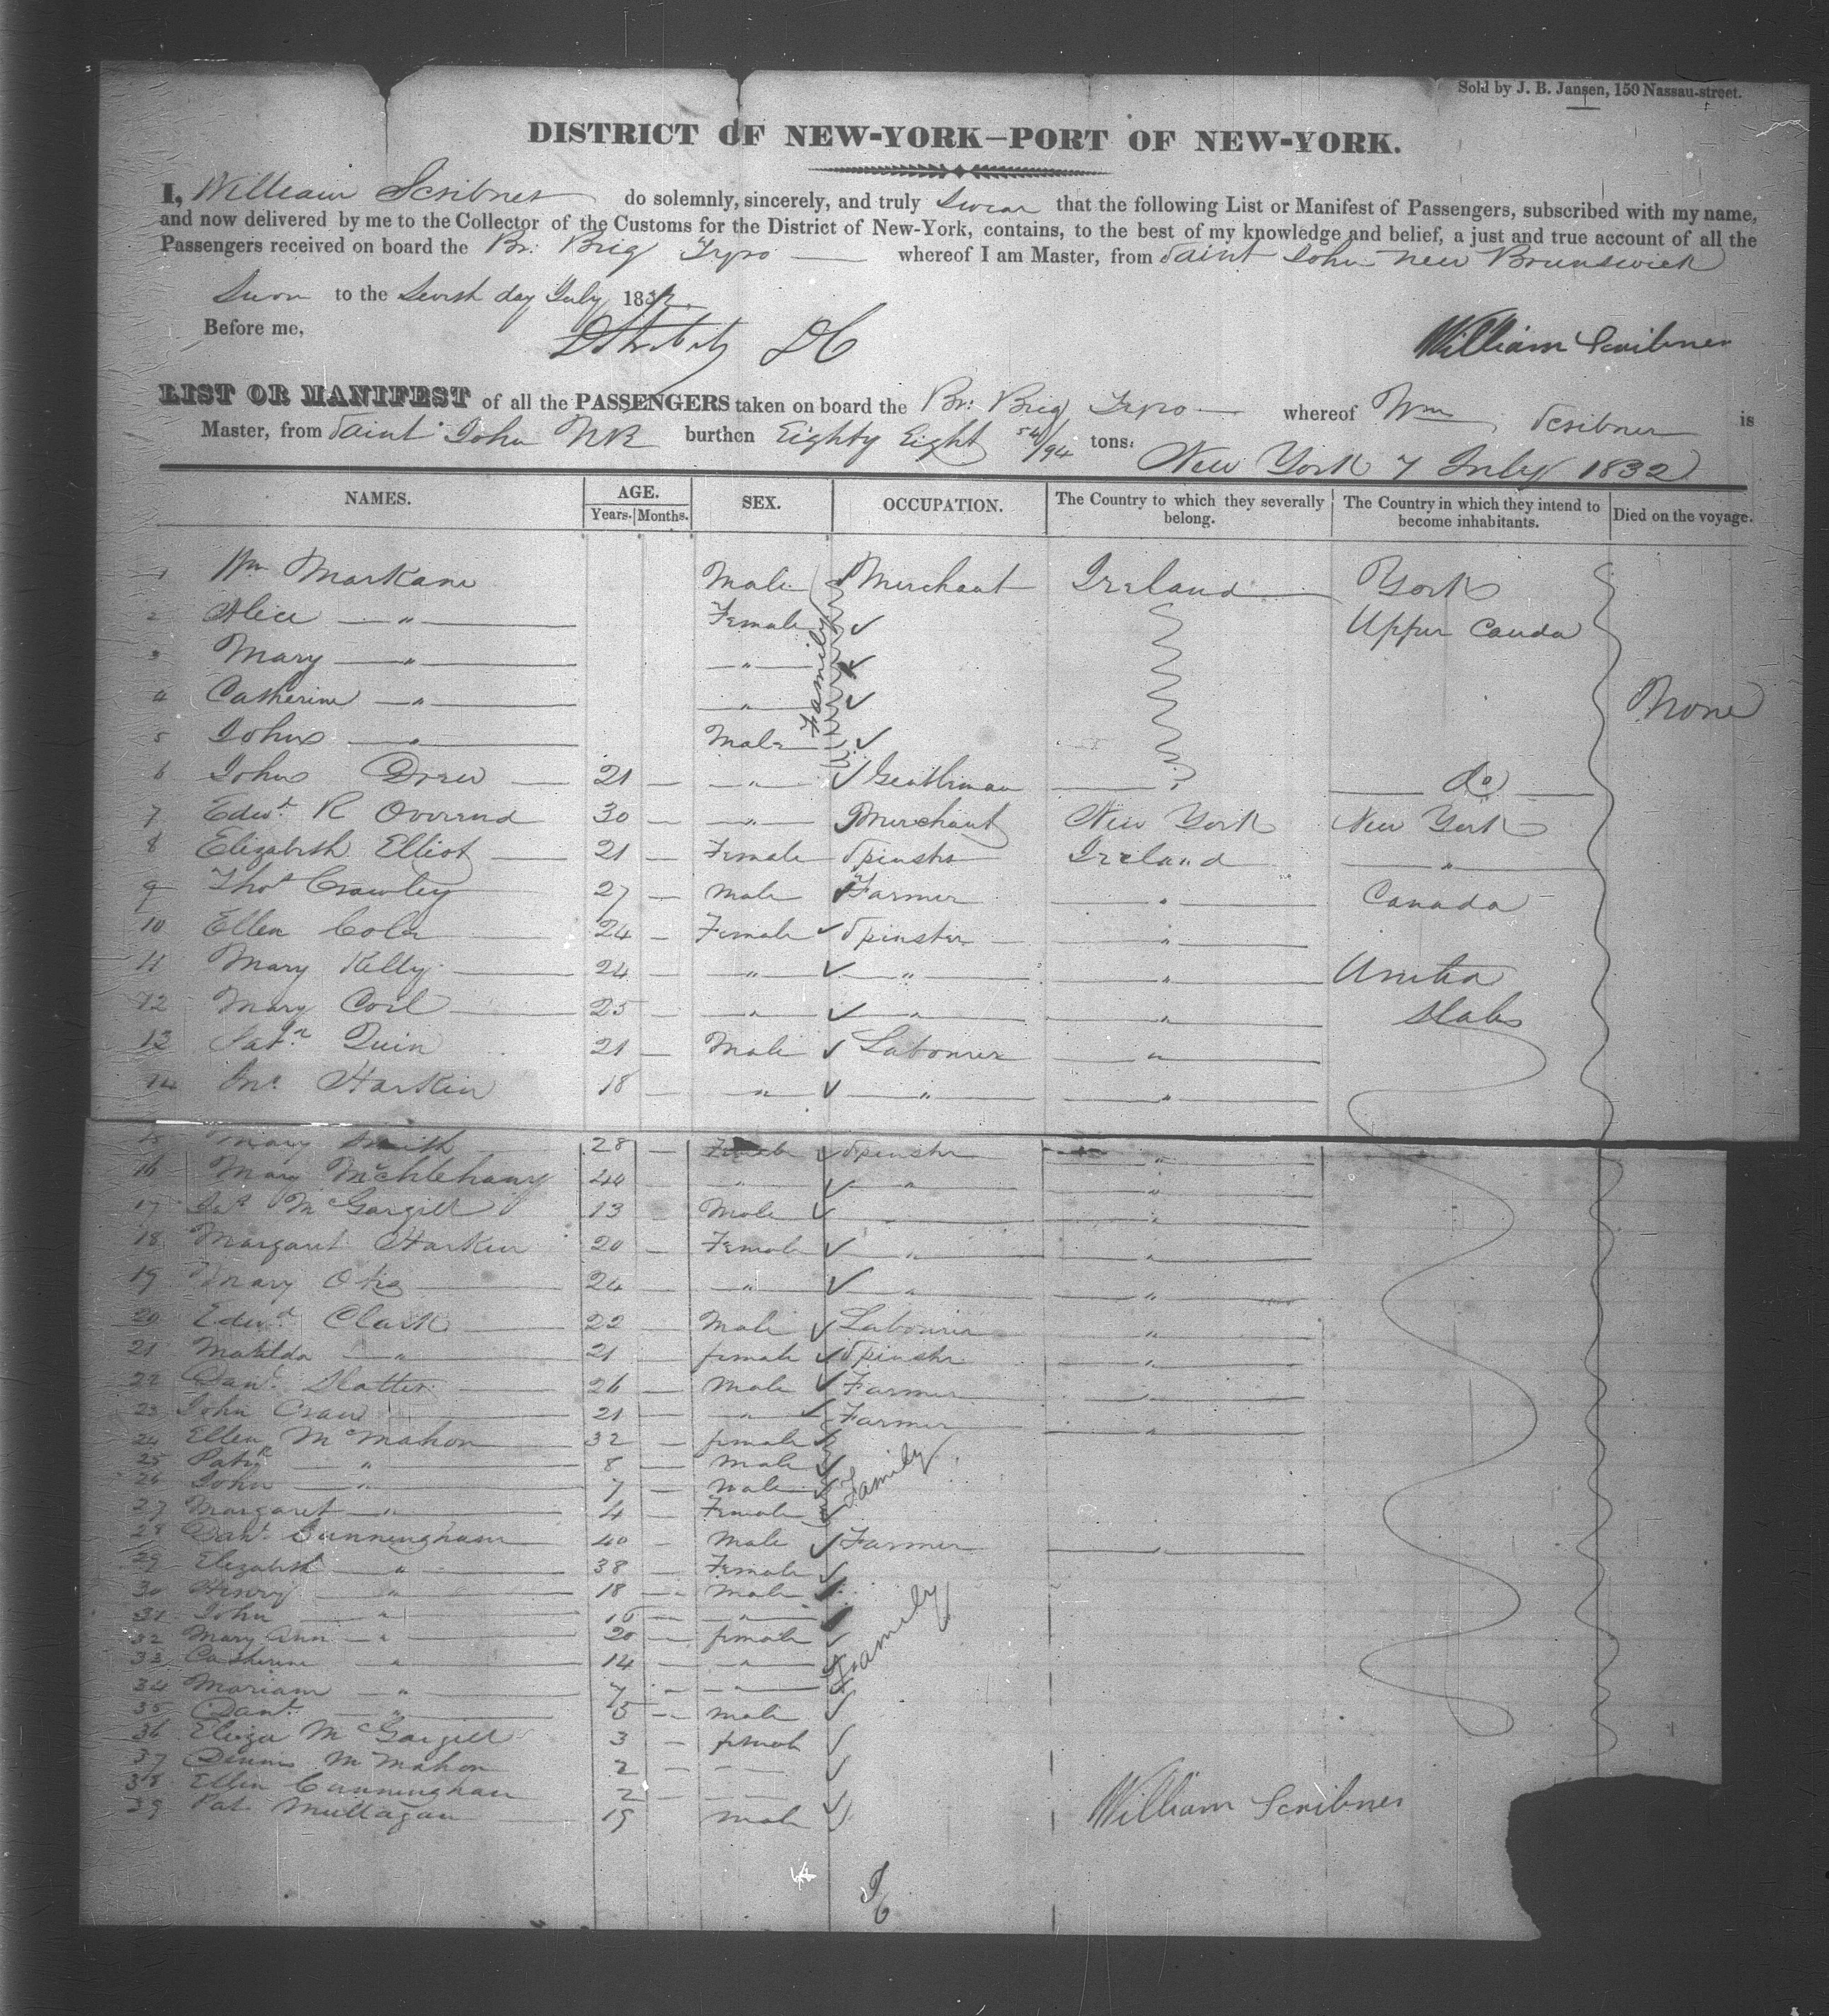 Sold by J. B. Jansen, 150 Nassau-street.
DISTRICT OF NEW-YORK—PORT OF NEW-YORK.
I, William Scribner do solemnly, sincerely, and truly Swear that the following List or Manifest of Passengers, subscribed with my name,
and now delivered by me to the Collector of the Customs for the District of New-York, contains, to the best of my knowledge and belief, a just and true account of all the
Passengers received on board the Br: Brig Tyro whereof I am Master, from Saint John New Brunswick
Sworn to the day July 1832.
Before me, DC William Scribner
LIST OR MANIFEST of all the PASSENGERS taken on board the Br: Brig Tyro whereof Wm Scribner is
Master, from Saint John NB burthen Eighty Eight 54/94 tons: New York 7 July 1832
NAMES. AGE. Years. Months. SEX. OCCUPATION. The Country to which they severally belong. The Country in which they intend to become inhabitants. Died on the voyage.
1 Wm Markane Male Merchant Ireland York
2 Alice " Female Family Upper Canda
3 Mary " "
4 Catherine " " None
5 John " Male
6 John Drew 21 " Gentleman do
7 Edwd. R Overend 30 " Merchant New York New York
8 Elizabeth Elliot 21 Female Spinster Ireland "
9 Thos Crawley 27 Male Farmer " Canada
10 Ellen Cole 24 Female Spinster "
11 Mary Kelly 24 " " " United
12 Mary Coil 25 " " " States
13 Patk. Quin 21 Male Labourer "
14 Jno. Harkin 18 " " "
15 Mary Smith 28 Female Spinster "
16 Mary 40 " " "
17 McGargill 13 Male "
18 Margaret Harkin 20 Female " "
19 Mary 24 " "
20 Edwd. Clark 22 Male Labourer "
21 Matilda " 21 female Spinster "
22 Danl. Slatter 26 Male Farmer "
23 John Craw 21 " Farmer "
24 Ellen McMahon 32 female
25 Patk " 8 Male Family
26 John " 7 Male
27 Margaret " 4 Female
28 Danl. Cunningham 40 Male Farmer "
29 Elizabeth " 38 Female
30 Henry " 18 Male
31 John " 16 " Family
32 Mary Ann " 20 female
33 Catherine " 14 "
34 Mariam " 7 "
35 Danl. " 5 male
36 Eliza McGargill 3 female
37 Dennis McMahon 2
38 Ellen Cunningham 2
39 Pat. Mullagan 19 male
William Scribner